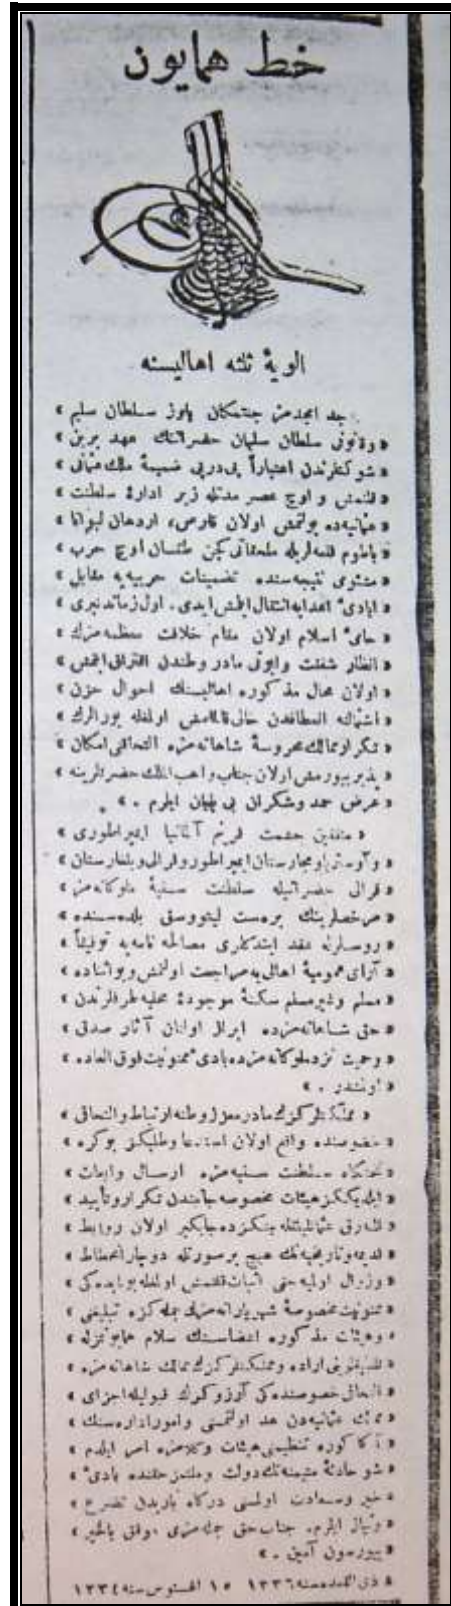 خط همايون
الويۀ ثلثه اهاليسنه
جد امجدمز جنتمكان ياوز سلطان سليم »
« وقانونی سلطان سليمان حضراتنك عهد برين »
« شوكتلرندن اعتباراً پی درپی ضميمۀ ملك عثمانی »
« قلنمش و اوچ عصر مدتله زير ادارۀ سلطنت »
« عثمانيه‌ده بولنمش اولان قارص، اردهان ليوانا »
« باطوم قلعه‌لريله ملحقاتی كچن طقسان اوچ حرب »
« مشئوی نتيجه‌سنده تضمينات حربيه‌يه مقابل »
« ايادیٔ اعدايه انتقال ايلمش ايدی. اول زماندنبری »
« حامیٔ اسلام اولان مقام خلافت معظمه‌مزك »
« انظار شفقت وابوتی مادر وطندن افتراق ايتمش »
« اولان محال مذكوره اهاليسنك احوال حزن »
« اشتمالنه انعطافدن خالی قالمامش اولمغله بورالرك »
« تكرار ممالك محروسۀ شاهانه‌مزه التحاقنی امكان »
« پذير بيورمش اولان جناب واهب الملك حضرتلرينه »
« عرض حمد وشكران بی پايان ايلرم . »
« متفقين حشمت قرينم آلمانيا ايمپراطوری »
« و آوستريا و مجارستان ايمپراطور و قرالی و بلغارستان »
« قرالی حضراتيله سلطنت سنيۀ ملوكانه‌مز »
« مرخصلرينك برەست ليتووسق بلده‌سنده »
« روسلرله عقد ايتدكلری مصالحه نامه‌يه توفيقاً »
« آرای عموميۀ اهالی‌يه مراجعت اولنمش و بو اثناده »
« مسلم وغير مسلم سكنۀ موجودۀ محليه طرفلرندن »
« حق شاهانه‌مزده ابراز اولنان آثار صدق »
« وحميت نزد ملوكانه‌مزده بادیٔ ممنونيت فوق العاده »
« اولمشدر . »
« مملكتلركزك مادر معزز وطنه ارتباط والتحاقی »
« خصوصنده واقع اولان استدعا وطلبكز بوكره »
« تختگاه سلطنت سنيه‌مزه ارسال وابعاث »
« ايلديككز هيئات مخصوصه جانبندن تكرار و تأييد »
« قلنه‌رق عثمانليلقله بينكزده جايگير اولان روابط »
« قديمه وتاريخيه‌نك هيچ بر صورتله دوچار انحطاط »
« وزوال اوليه‌جغی اثبات قلنمش اولمغله بوبابده‌كی »
« ممنونيت مخصوصۀ شهريارانه‌مزك جمله‌كزه تبليغی »
« وهيئات مذكوره اعضاسنك سلام همايونمزله »
« تلطيفلرينی اراده ومملكتلركزك ممالك شاهانه‌مزه »
« التحاقی خصوصنده‌كی آرزوكزك قبوليله اجزای »
« ممالك عثمانيه‌دن عد اولنمسنی وامور اداره‌سنك »
« آكا كوره تنظيمنی هيئات وكلامزه امر ايلدم »
« شو حادثۀ متيمنه‌نك دولت وملتمز حقنده بادیٔ »
« خير وسعادت اولمسنی درگاه باريدن تضرع »
« ونياز ايلرم. جناب حق جمله‌مزی موفق بالخير »
« بيورسون آمين . »
٨ ذی القعده سنه ١٣٣٦ ١٥ اغستوس سنه ١٣٣٤